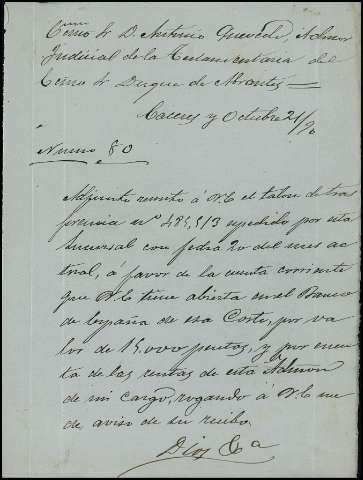 Excmo Sr D. Antonio Quevedo, Admor
Judicial de la Testamentaria del
Excmo Sr Duque de Abrantes =
Caceres y Octubre 21/90
Numo 80
Adjunto remito á V.E el talon de tras
ferencia nº 485,513 espedido por esta
sucursal con fecha 20 del mes ac
tual, á favor de la cuenta corriente
que V.E tiene abierta en el Banco
de España de esa Corte, por va
lor de 15,000 pesetas, y por cuen
ta de las rentas de esta Admon
de mi cargo, rogando á V.E me
de aviso de su recibo.
Dios &a